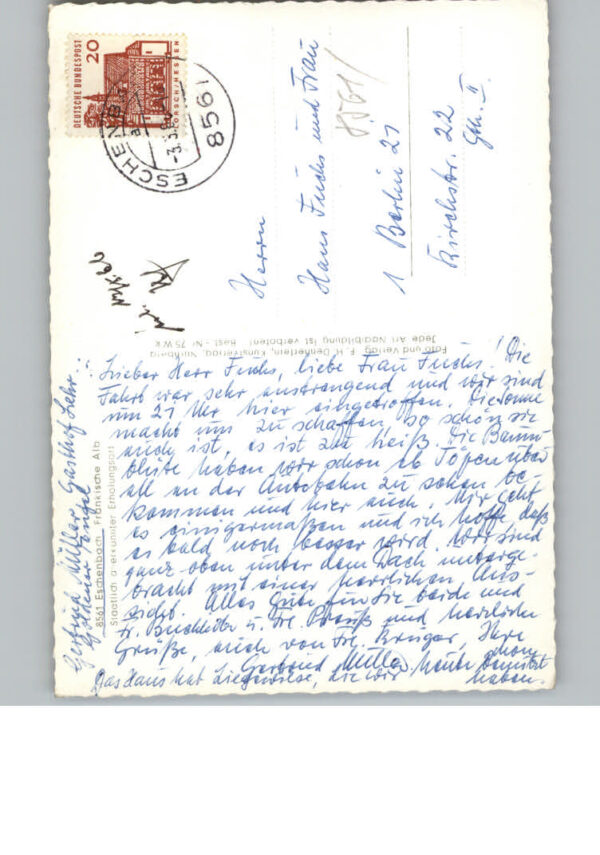 DEUTSCHE BUNDESPOST
20
LORSCH/HESSEN
ESCHENB
8561
-3.5.
8561
Herrn
Hans Fuchs und Frau
1 Berlin 21
Kirchstr. 22
Gth. II
Foto und Verlag F. H. Dennerlein, Kunstverlag, Nürnberg
Jede Art Nachbildung ist verboten! Best.-Nr. 75 Wk
8561 Eschenbach Fränkische Alb
Staatlich anerkannter Erholungsort
Gertrud Müller, Gasthof
Lieber Herr Fuchs, liebe Frau Fuchs! Die
Fahrt war sehr anstrengend und wir sind
um 21 Uhr hier eingetroffen. Die Sonne
macht uns zu schaffen, so schön sie
auch ist, es ist zu heiß. Die Baum-
blüte haben wir schon ab Töpen über
all an der Autobahn zu sehen be
kommen und hier auch. Mir geht
es einigermaßen und ich hoffe, daß
es bald noch besser wird. Wir sind
ganz oben unter dem Dach unterge-
bracht mit einer herrlichen Aus-
sicht. Alles Gute für Sie beide und
Fr. u. Frl. Preuß und herzliche
Grüße, auch von Frl. Krüger, Ihre
Gertrud Müller
Das Haus hat Liegewiese, die wir heute schon benutzt
haben.